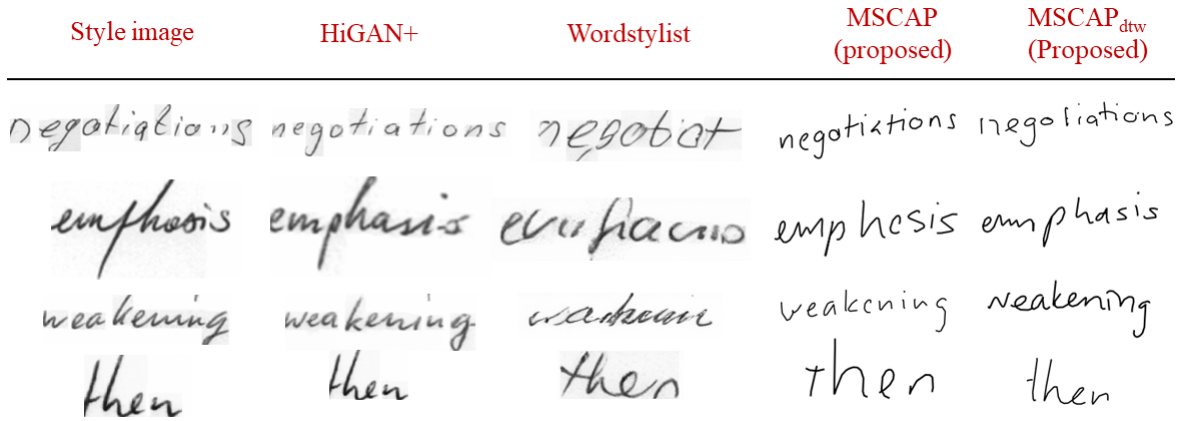 Style image HiGAN+ Wordstylist MSCAP (proposed) MSCAPdtw (Proposed)
negatiations negotiations negotiat negotiations negoliations
emphasis emphasis emphesis emnphasis
weakening weakening weakcning weakening
then then then then then